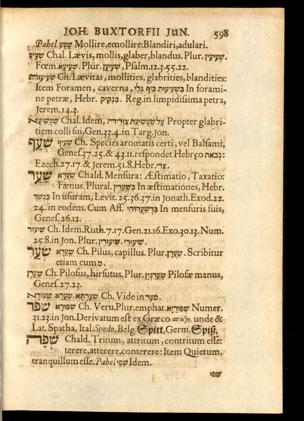 JOH. BUXTORFII JUN. 598
Pahel שעע Mollire, emollire: Blandiri, adulari.
שעיע Chal. Lævis, mollis, glaber, blandus. Plur. שעיעין.
Fœm. שעיעא. Plur. שעיען. Psalm. 12. 3. 55. 22.
Ch. Lævitas, mollities, glabrities, blandities:
Item Foramen, caverna, In foramine
petræ, Hebr. Reg. in limpidissima petra,
Jerem. 14. 3.
Chal. Idem, Propter glabritiem
colli sui, Gen. 33. 4. in Targ. Jon.
שעף Ch. Species aromatis certi, vel Balsami,
Genes. 37. 25. & 43. 11. respondet Hebræo נכאת.
Ezech. 27. 17. & Jerem. 51. 8. Hebr. צרי.
שער שערא Chald. Mensura: Æstimatio, Taxatio:
Fænus. Plural. In æstimationes, Hebr.
In usuram, Levit. 25. 36. 37. in Jonath. Exod. 22.
24. in eodem. Cum Aff. In mensuris suis,
Genes. 26. 12.
שיעור Ch. Idem. Ruth. 7. 17. Gen. 21. 16. Exo. 30. 13. Num.
25. 8. in Jon. Plur. שיעורין.
שער שערא Ch. Pilus, capillus. Plur. שערין. Scribitur
etiam cum ס.
Ch. Pilosus, hirsutus. Plur. Pilosæ manus,
Genes. 27. 23.
Ch. Vide in סער.
שפד שפודא Ch. Veru. Plur. emphat. שפודיא Numer.
21. 23. in Jon. Derivatum est ex Græco unde &
Lat. Spatha, Ital. Spedo, Belg. Spitt, Germ. Spiß.
שפה Chald. Tritum, attritum, contritum esse:
terere, atterere, conterere: Item Quietum,
tranquillum esse. Pahel שפי Idem.
שפי